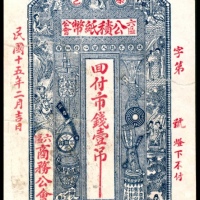 公積紙幣
田付市錢壹吊
字第
號
燈下不付
民國十五年二月吉日
商務公會